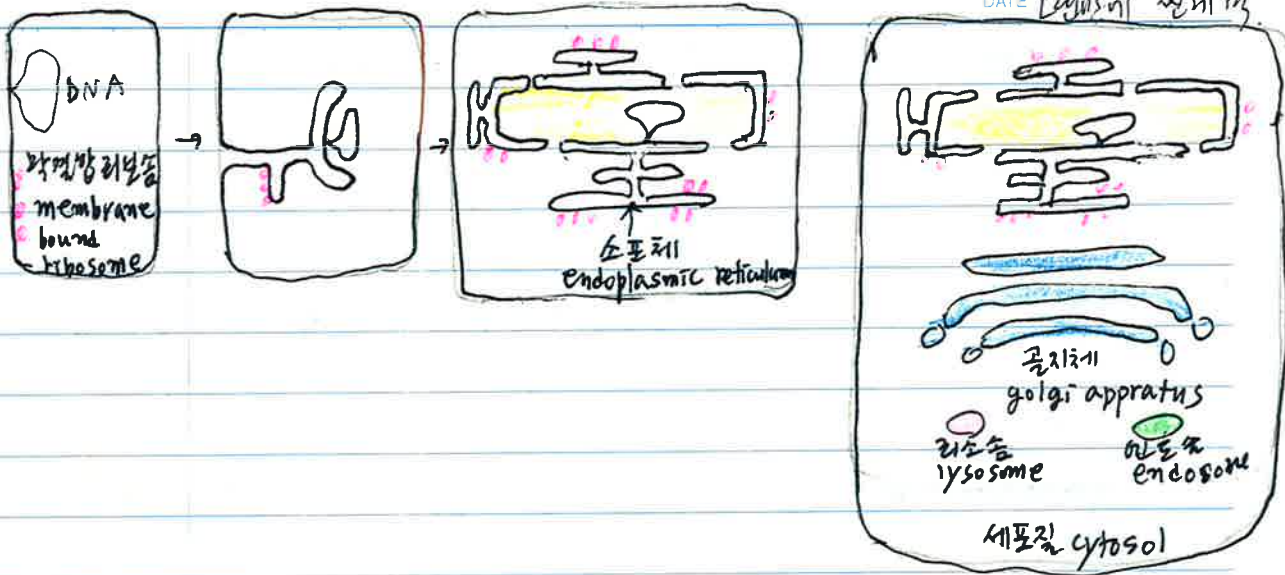 DATE
DNA
막결합 리보솜
membrane
bound
ribosome
소포체
endoplasmic reticulum
골지체
golgi appratus
리소솜
lysosome
엔도솜
endosome
세포질 cytosol